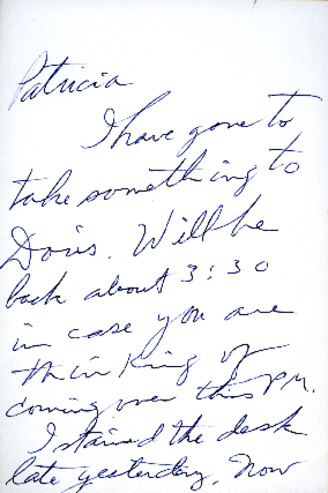 Patricia
I have gone to
take something to
Doris. Will be
back about 3:30
in case you are
thinking of
coming over this PM.
I stained the desk
late yesterday. Now